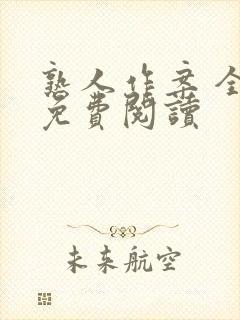 熟人作案全
免費閱讀
未来航空